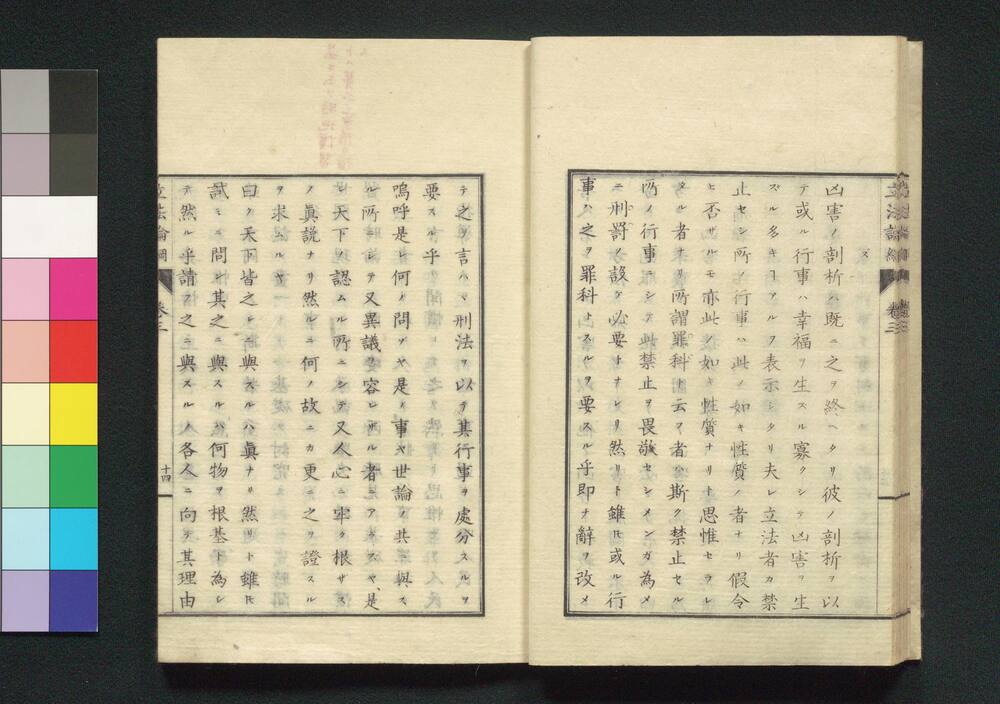 凶害ノ剖析ハ既ニ之ヲ終ヘタリ彼ノ剖析ヲ以
テ或ル行事ハ幸福ヲ生スル寡クシテ凶害ヲ生
スル多キコアルヲ表示シタリ夫レ立法者カ禁
止セシ所ノ行事ハ此ノ如キ性質ノ者ナリ假令
ヒ否サルモ亦此ノ如キ性質ナリト思惟セラレ
タル者ナリ所謂罪科ト云ヲ者ハ斯ク禁止セル
所ノ行事ニシテ此禁止ヲ畏敬セシメンガ為メ
ニ刑罰ノ設ケ必要トナレリ然リト雖𪜈或ル行
事ハ之ヲ罪科トスルヲ要スル乎即ナ辭ヲ改メ
テ之ヲ言ハヽ刑法ヲ以テ其行事ヲ處分スルヲ
要スル乎
嗚呼是レ何ノ問ゾヤ是ノ事ヤ世論ノ共ニ與ス
ル所ニシテ又異議ヲ容ヒザル者ニアラズヤ是
レ天下ノ認ムル所ニシテ又人心ニ牢ク根ザス
ノ眞説ナリ然ルニ何ノ故ニカ更ニ之ヲ證スル
ヲ求ムルヤ
曰ク天下皆之レニ與スルハ眞ナリ然リト雖𪜈
試ミニ問ン其之ニ與スルハ何物ヲ根基ト為シ
テ然ル乎請フ之ニ與スルノ各人ニ向テ其理由
立法論綱
卷三
十四